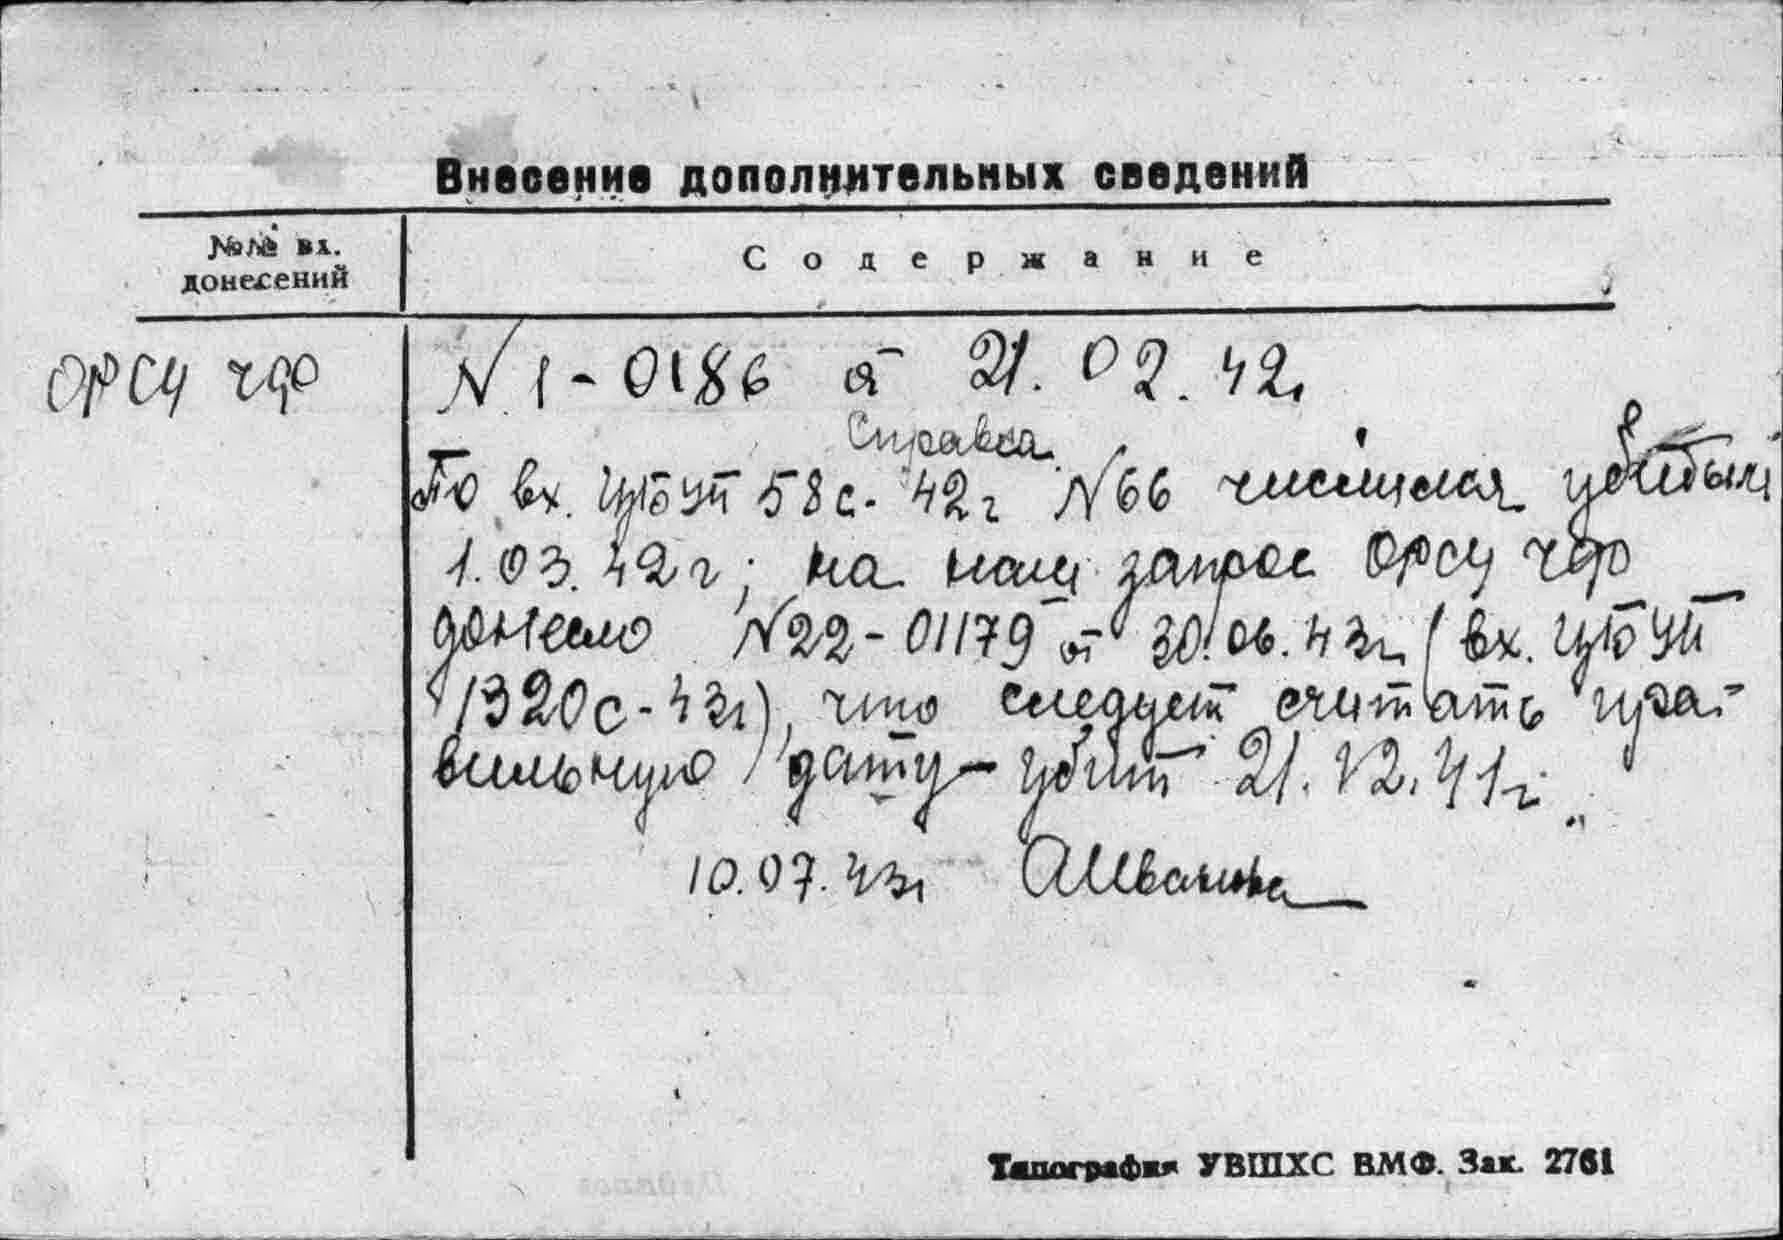 Внесение дополнительных сведений
№№ вх. донесений
Содержание
ОРСУ ЧФ
N 1-0186 от 21.02.42г
Справка
По вх. ЦБУП 58с-42г N66 числился убитым
1.03.42г; на наш запрос ОРСУ ЧФ
донесло N22-01179 от 30.06.43г (вх. ЦБУП
1320с-43г), что следует считать пра-
вильную дату - убит 21.12.41г.
10.07.43г АИванова
Типография УВШХС ВМФ. Зак. 2761